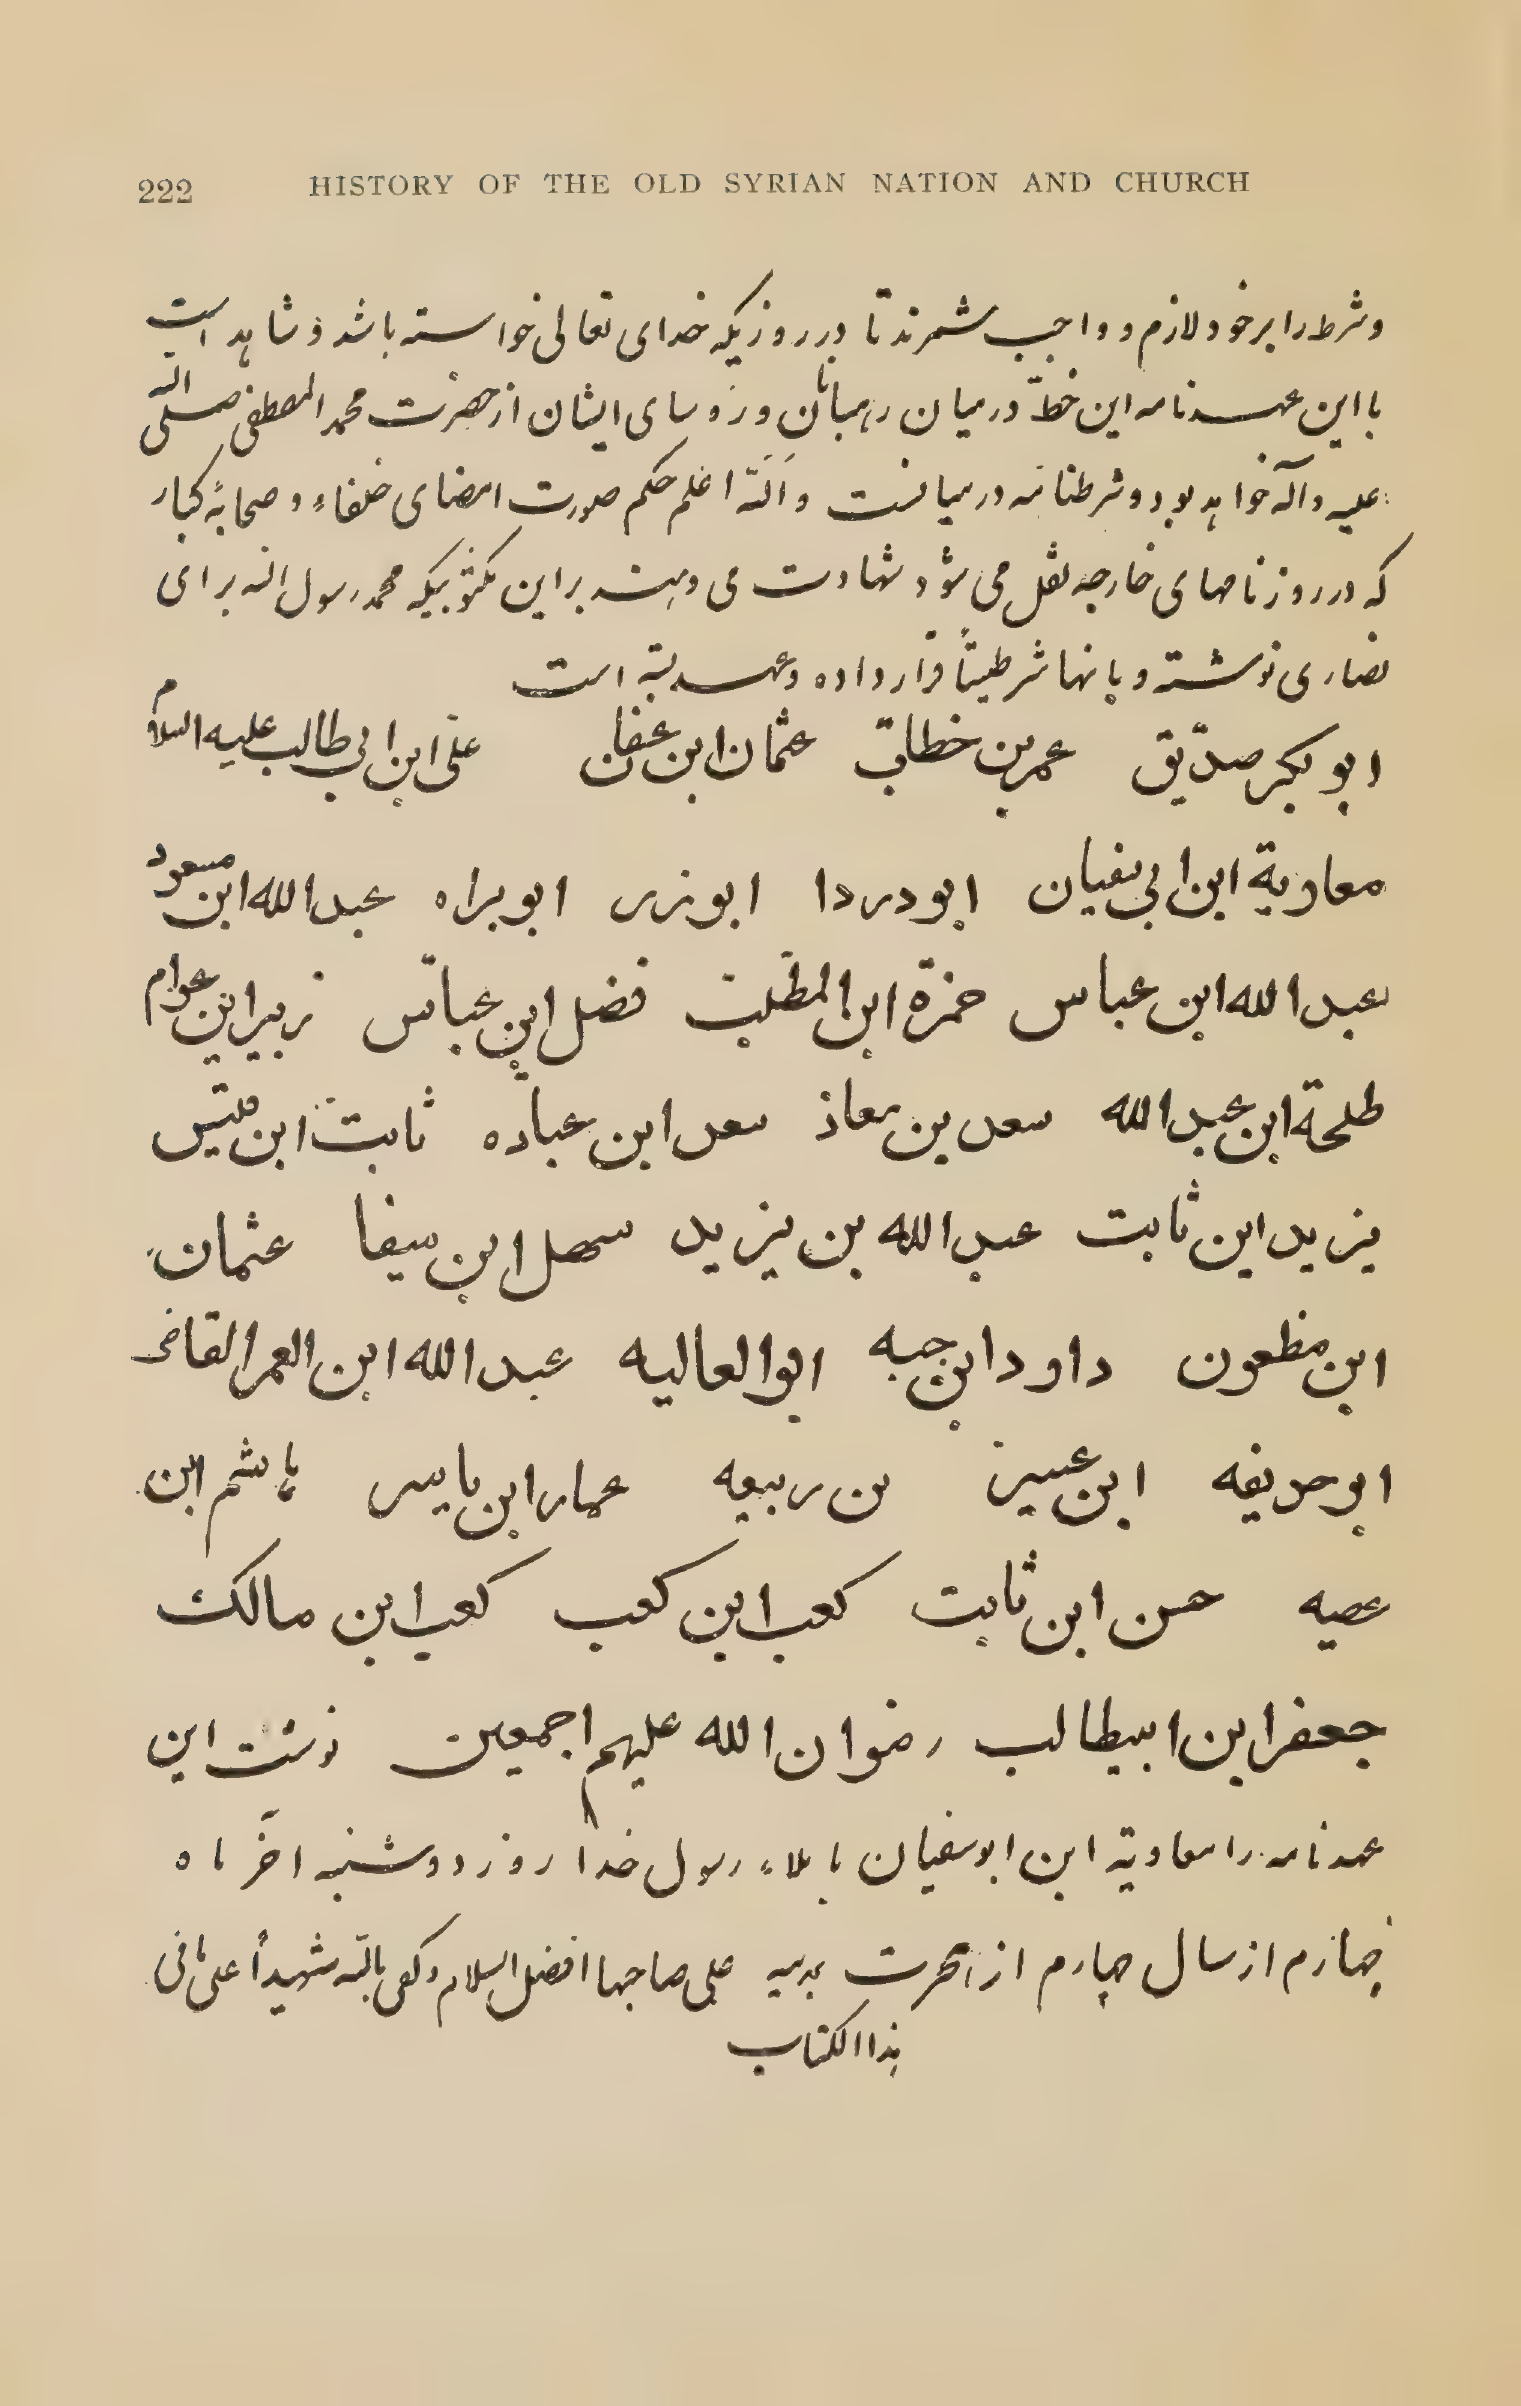 222 HISTORY OF THE OLD SYRIAN NATION AND CHURCH
وشرط را بر خود لازم و واجب شمرند تا در روزیکه خدای تعالی خواسته باشد و شاهد است
با این عهدنامه این خط در میان رهبانان و رؤسای ایشان از حضرت محمد المصطفی صلی الله
علیه و آله خواهد بود و شرطنامه در میانست والله اعلم حکم صورت امضای خلفاء و صحابۀ کبار
که در روزنامهای خارجه نقل می شود شهادت می دهند بر این مکتوبیکه محمد رسول الله برای
نصاری نوشته و بانها شرطیتاً قرار داده و عهد بسته است
ابو بکر صدّیق عمر بن خطاب عثمان ابن عفان علی ابن ابی طالب علیه السلام
معاویة ابن ابی سفیان ابو دردا ابو زر ابو براه عبد الله ابن مسعود
عبد الله ابن عباس حمزة ابن المطلب فضل ابن عباس زبیر ابن عوام
طلحة ابن عبد الله سعد بن معاذ سعد ابن عباده ثابت ابن قیس
یزید ابن ثابت عبد الله بن یزید سهل ابن سیفا عثمان
ابن مظعون داود ابن جبه ابو العالیه عبد الله ابن العمر القاضی
ابو حذیفه ابن بن ربیعه عمار ابن یاسر هاشم ابن
عصیه حسن ابن ثابت کعب ابن کعب کعب ابن مالک
جعفر ابن ابیطالب رضوان الله علیهم اجمعین نوشت این
عهدنامه را معاویة ابن ابو سفیان باملاء رسول خدا روز دوشنبه آخر ماه
چهارم از سال چهارم از هجرت علی صاحبها افضل السلام و کفی بالله شهیداً علی مافی
هذا الکتاب